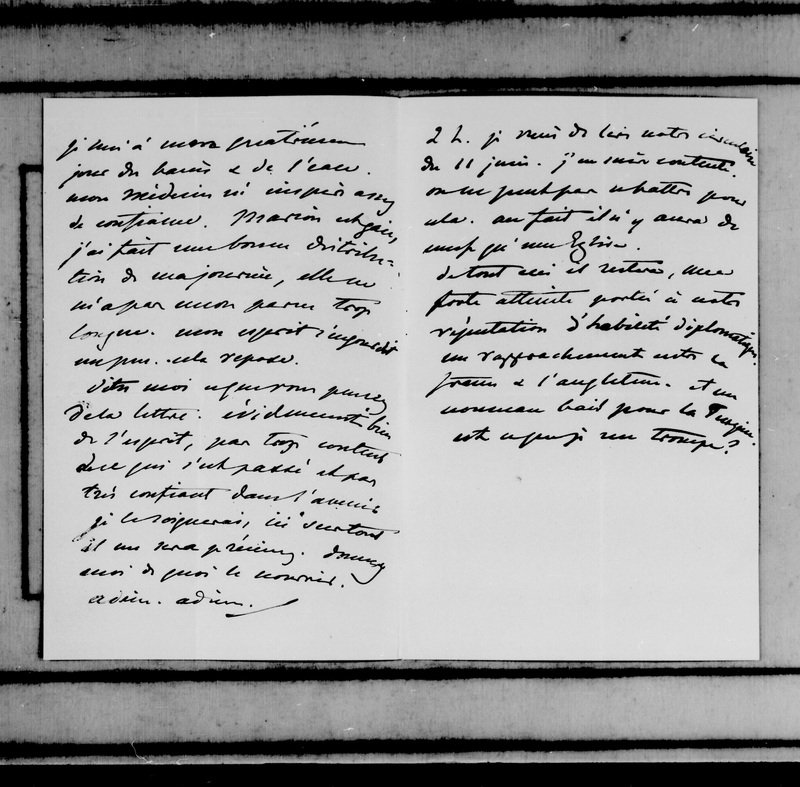 je suis à mon quatrième
jour de bains & de l'eau.
mon médecin m'inspire assez
de confiance. Marion est gaie,
j'ai fait une bonne distribu-
tion de ma journée, elle ne
m'a pas encore paru trop
longue. mon esprit s'engourdit
un peu. cela repose.
dites moi ce que vous pensez
de la lettre. évidemment bien
de l'esprit, pas trop content
de ce qui s'est passé et pas
très confiant dans l'avenir
je le soignerai, ici surtout
il me sera précieux. donnez
moi de quoi le nourrir.
adieu. adieu.
2 h. je viens de lire notre circulaire
du 11 juin. j'en suis contente.
on ne peut pas se battre pour
cela. au fait il n'y aura de
neuf qu'une Eglise.
de tout ceci il restera, une
forte atteinte portée à notre
réputation d'habileté diplomatique.
un rapprochement entre la
france & l'angleterre. et un
nouveau bail pour la Turquie.
est ce que je me trompe?